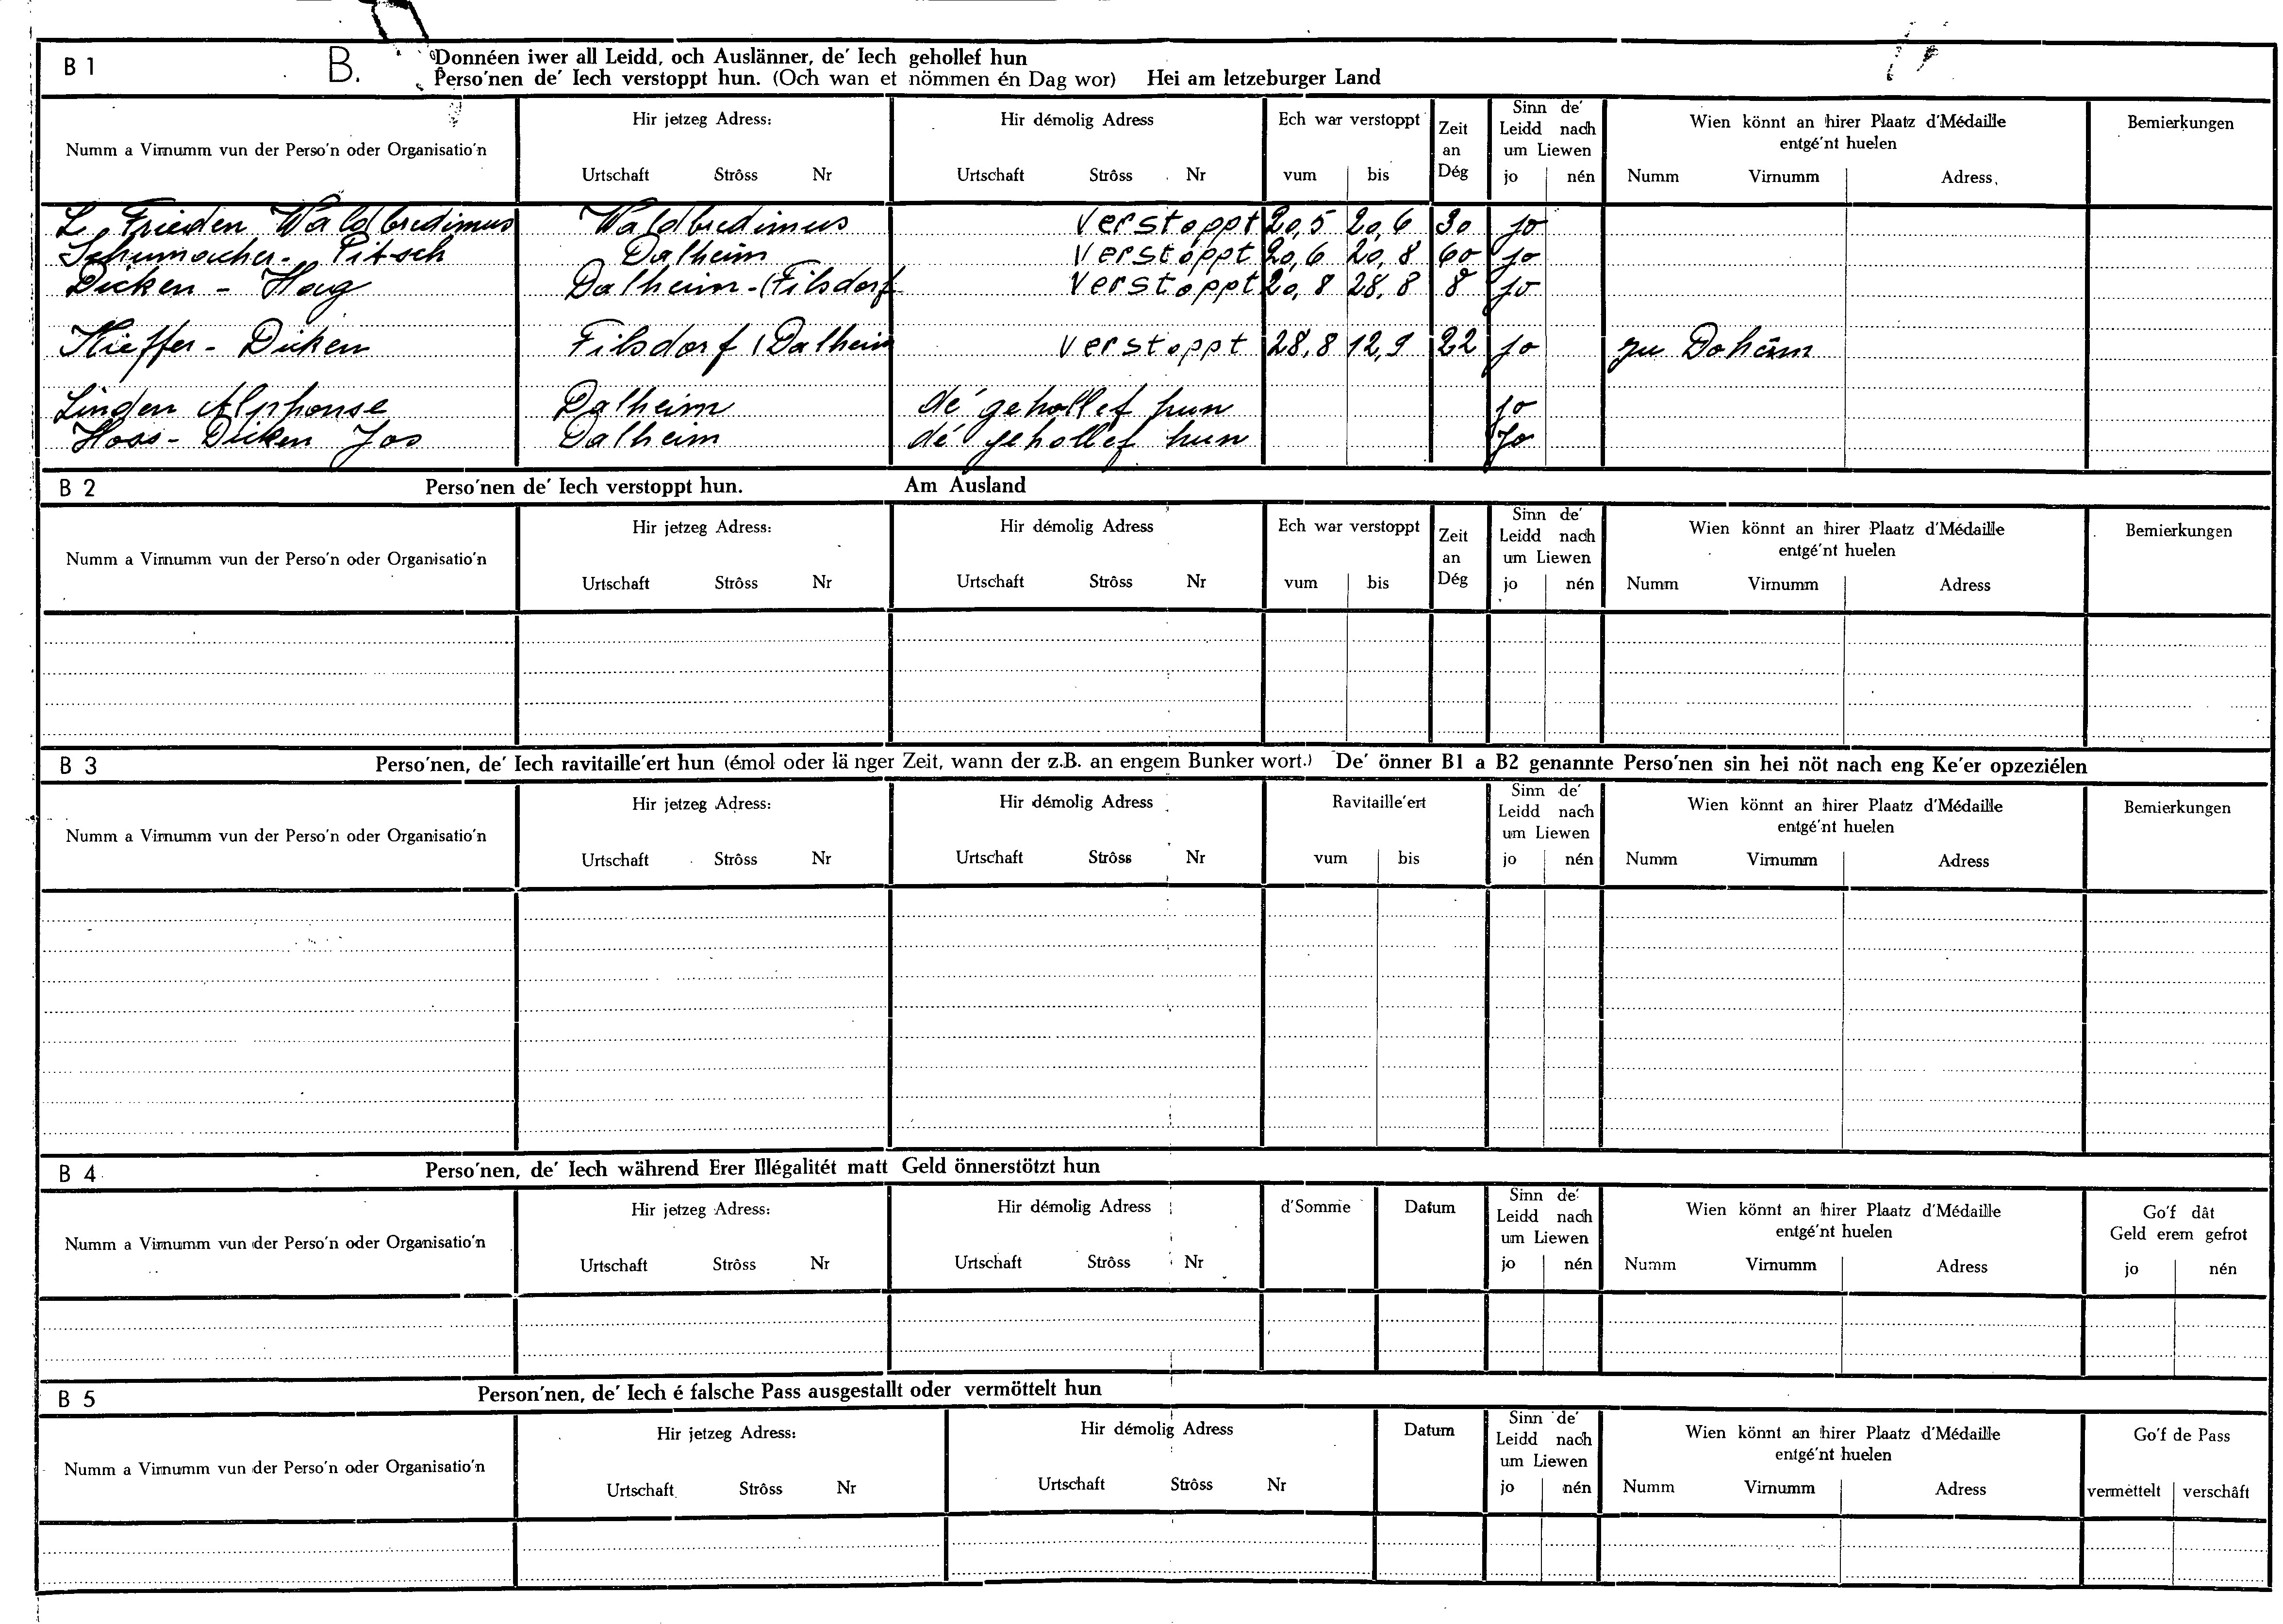 B 1 B. Donnéen iwer all Leidd, och Auslänner, de' Iech gehollef hun
Perso'nen de' Iech verstoppt hun. (Och wan et nömmen én Dag wor) Hei am letzeburger Land
Numm a Virnumm vun der Perso'n oder Organisatio'n
Hir jetzeg Adress:
Urtschaft Strôss Nr
Hir démolig Adress
Urtschaft Strôss Nr
Ech war verstoppt
vum bis
Zeit
an
Dég
Sinn de'
Leidd nach
um Liewen
jo nén
Wien könnt an hirer Plaatz d'Médaille
entgé'nt huelen
Numm Virnumm Adress
Bemierkungen
L. Frieden Waldbredimus Waldbredimus Verstoppt 20,5 20,6 30 jo
Schumacher - Pitsch Dalheim Verstoppt 20,6 20,8 60 jo
Dicken - Haug Dalheim-(Filsdorf Verstoppt 20,8 28,8 8 jo
Kieffer - Dicken Filsdorf (Dalheim verstoppt 28,8 12,9 22 jo zu Dohäm
Linden Alphonse Dalheim dé gehollef hun jo
Hoss - Dicken Jos Dalheim dé gehollef hun jo
B 2 Perso'nen de' Iech verstoppt hun. Am Ausland
Numm a Virnumm vun der Perso'n oder Organisatio'n
Hir jetzeg Adress:
Urtschaft Strôss Nr
Hir démolig Adress
Urtschaft Strôss Nr
Ech war verstoppt
vum bis
Zeit
an
Dég
Sinn de'
Leidd nach
um Liewen
jo nén
Wien könnt an hirer Plaatz d'Médaille
entgé'nt huelen
Numm Virnumm Adress
Bemierkungen
B 3 Perso'nen, de' Iech ravitaille'ert hun (émol oder länger Zeit, wann der z.B. an engem Bunker wort.) De' önner B1 a B2 genannte Perso'nen sin hei nöt nach eng Ke'er opzeziélen
Numm a Virnumm vun der Perso'n oder Organisatio'n
Hir jetzeg Adress:
Urtschaft Strôss Nr
Hir démolig Adress
Urtschaft Strôss Nr
Ravitaille'ert
vum bis
Sinn de'
Leidd nach
um Liewen
jo nén
Wien könnt an hirer Plaatz d'Médaille
entgé'nt huelen
Numm Virnumm Adress
Bemierkungen
B 4 Perso'nen, de' Iech während Erer Illégalitét matt Geld önnerstötzt hun
Numm a Virnumm vun der Perso'n oder Organisatio'n
Hir jetzeg Adress:
Urtschaft Strôss Nr
Hir démolig Adress
Urtschaft Strôss Nr
d'Somme
Datum
Sinn de'
Leidd nach
um Liewen
jo nén
Wien könnt an hirer Plaatz d'Médaille
entgé'nt huelen
Numm Virnumm Adress
Go'f dât
Geld erem gefrot
jo nén
B 5 Person'nen, de' Iech é falsche Pass ausgestallt oder vermöttelt hun
Numm a Virnumm vun der Perso'n oder Organisatio'n
Hir jetzeg Adress:
Urtschaft Strôss Nr
Hir démolig Adress
Urtschaft Strôss Nr
Datum
Sinn de'
Leidd nach
um Liewen
jo nén
Wien könnt an hirer Plaatz d'Médaille
entgé'nt huelen
Numm Virnumm Adress
Go'f de Pass
vermëttelt verschâft